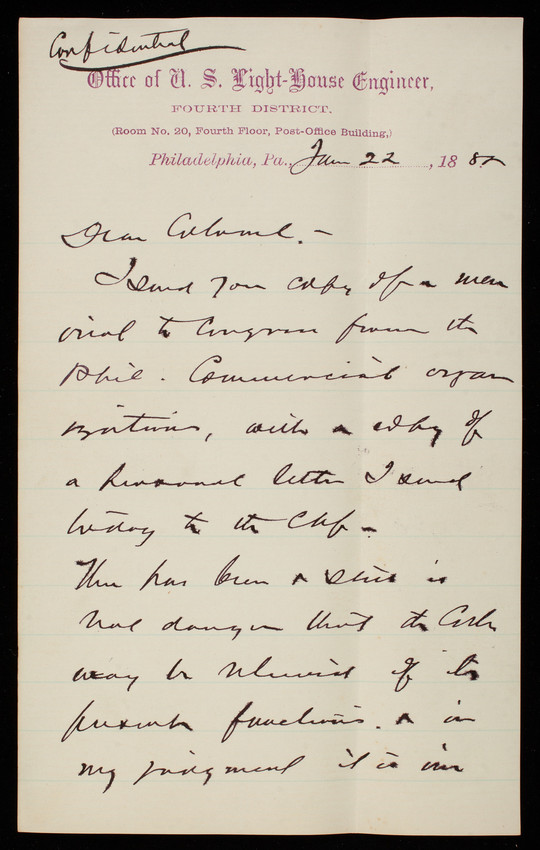 Confidential
Office of U. S. Light-House Engineer,
FOURTH DISTRICT.
(Room No. 20, Fourth Floor, Post-Office Building,)
Philadelphia, Pa., Jan 22, 188
Dear Colonel. -
I send you copy of a mem
orial to Congress from the
Phil. Commercial organ
izations, with a copy of
a personal letter I send
today to the Chf -
There has been & still is
real danger that the Corps
may be relieved of its
present functions. & in
my judgment it is im